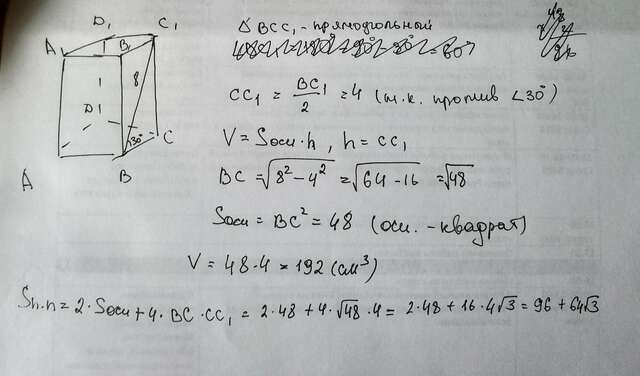 D₁ C₁
A₁ B₁
8
D
30°
C
A
B
Δ BCC₁ - прямоугольный
CC₁ = BC₁/2 = 4 (т.к. против ∠30°)
V = Sосн·h, h = CC₁
BC = √(8² - 4²) = √(64 - 16) = √48
Sосн = BC² = 48 (осн. - квадрат)
V = 48·4 = 192 (см³)
Sп.п = 2·Sосн + 4·BC·CC₁ = 2·48 + 4·√48·4 = 2·48 + 16·4√3 = 96 + 64√3